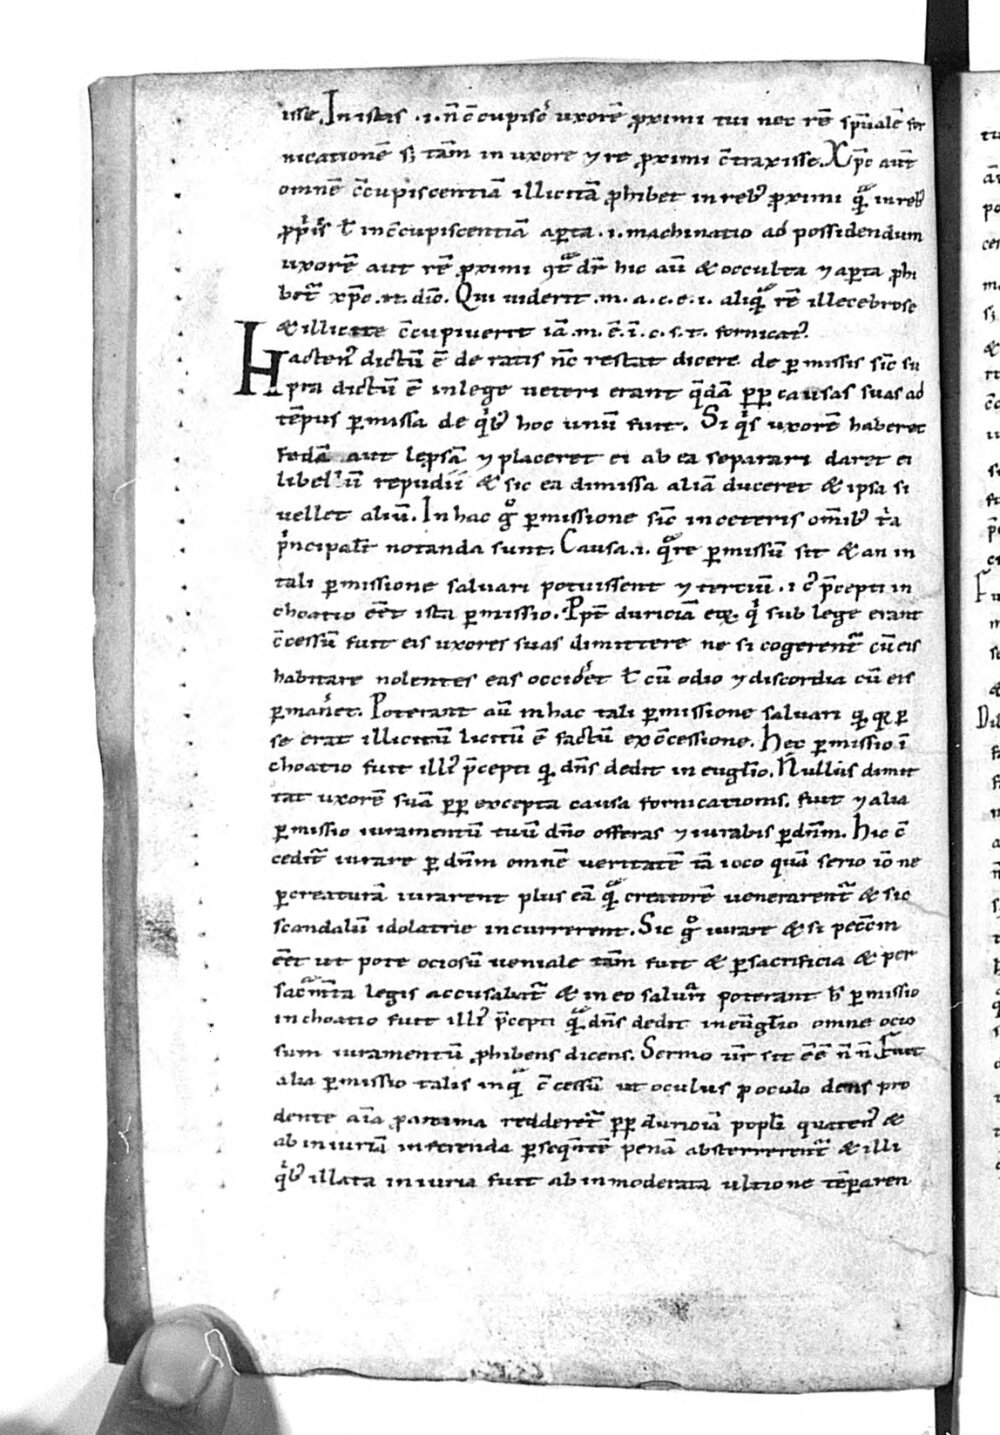 isse. In istis .i. n̄ c̄cupisc̉ uxorē ꝓximi tui nec rē sp̄ualē for
nicationē s; tam̄ in uxore ⁊ re ꝓximi c̄traxisse. Xp̄c aut̄
omnē c̄cupiscentiā illicitā ꝓhibet in reb; ꝓximi qͣ̄ in reb;
ꝓp̉is ł in c̄cupiscentiā aꝑta .i. machinatio ad possidendum
uxorē aut rē ꝓximi dr̄ hic aū & occulta ⁊ aꝑta ꝓhi
bet xp̄c dic̄. Qui uiderit .m. a. c. e. i. aliqͣ̄ rē illecebrose
& illicite c̄cupiuerit iā .m. ē. i. c. s. t. fornicat᷑.
Hacten᷒ dictū ē de ratis nc̄ restat dicere de ꝑmissis sic̄ su
pra dictū ē in lege ueteri erant q̄dā ꝑp causas suas ad
tēpus ꝑmissa de qͥb; hoc unū fuit. Si qͥs uxorē haberet
fedā aut lep̱sā ⁊ placeret ei ab ea separari daret ei
libellū repudii & sic ea dimissa aliā duceret & ipsa si
uellet aliū. In hac gͦ ꝑmissione sic̄ in ceteris om̄ib; tͥa
pͥncipalit̄ notanda sunt. Causa .i. qͣre ꝑmissū sit & an in
tali ꝑmissione saluari potuissent ⁊ terciū .i. c᷒ p̄cepti in
choatio eēt ista ꝑmissio. Ppt̄ duriciā eoꝝ qͥ sub lege erant
c̄cessū fuit eis uxores suas dimittere ne si cogerent᷑ cū eis
habitare nolentes eas occid̉et ł cū odio ⁊ discordia cū eis
ꝑman̉et. Poterant aū in hac tali ꝑmissione saluari q. qd̄ ꝑ
se erat illicitū licitū ē factū ex c̄cessione. Hec ꝑmissio ī
choatio fuit illi᷒ p̄cepti q. dn̄s dedit in euglīo. Nullus dimit
tat uxorē suā ꝑp excepta causa fornicationis. fuit ⁊ alia
ꝑmissio iuramentū tuū dn̄o offeras ⁊ iurabis ꝑ dn̄m. Hic c̄
cedit᷑ iurare ꝑ dn̄m omnē ueritatē tā ioco quā serio iō ne
ꝑ creaturā iurarent plus eā qͣ̄ creatorē uenerarent᷑ & sic
scandalū idolatrie incurrerent. Sic gͦ iurare & si pecc̄m
eēt ut pote ociosū ueniale tam̄ fuit & ꝑ sacrificia & per
sacͣm̄ta legis accusabat᷑ & in eo saluari poterant h̄ ꝑmissio
inchoatio fuit illi᷒ p̄cepti qͣ̄ dn̄s dedit in eūglīo omne ocio
sum iuramentū ꝓhibens dicens. Sermo ur̄ sit ē ē n̄ n̄. Fuit
alia ꝑmissio talis in qͣ c̄cessū ut oculus ꝓ oculo dens pro
dente aīa ꝓ anima redderet᷑ ꝑp duriciā popl̄i quaten᷒ &
ab iniuriā inferenda ꝑseqn̄tē penā absterrerent᷑ & illi
qͥb; illata iniuria fuit ab inmoderata ultione tēꝑaren